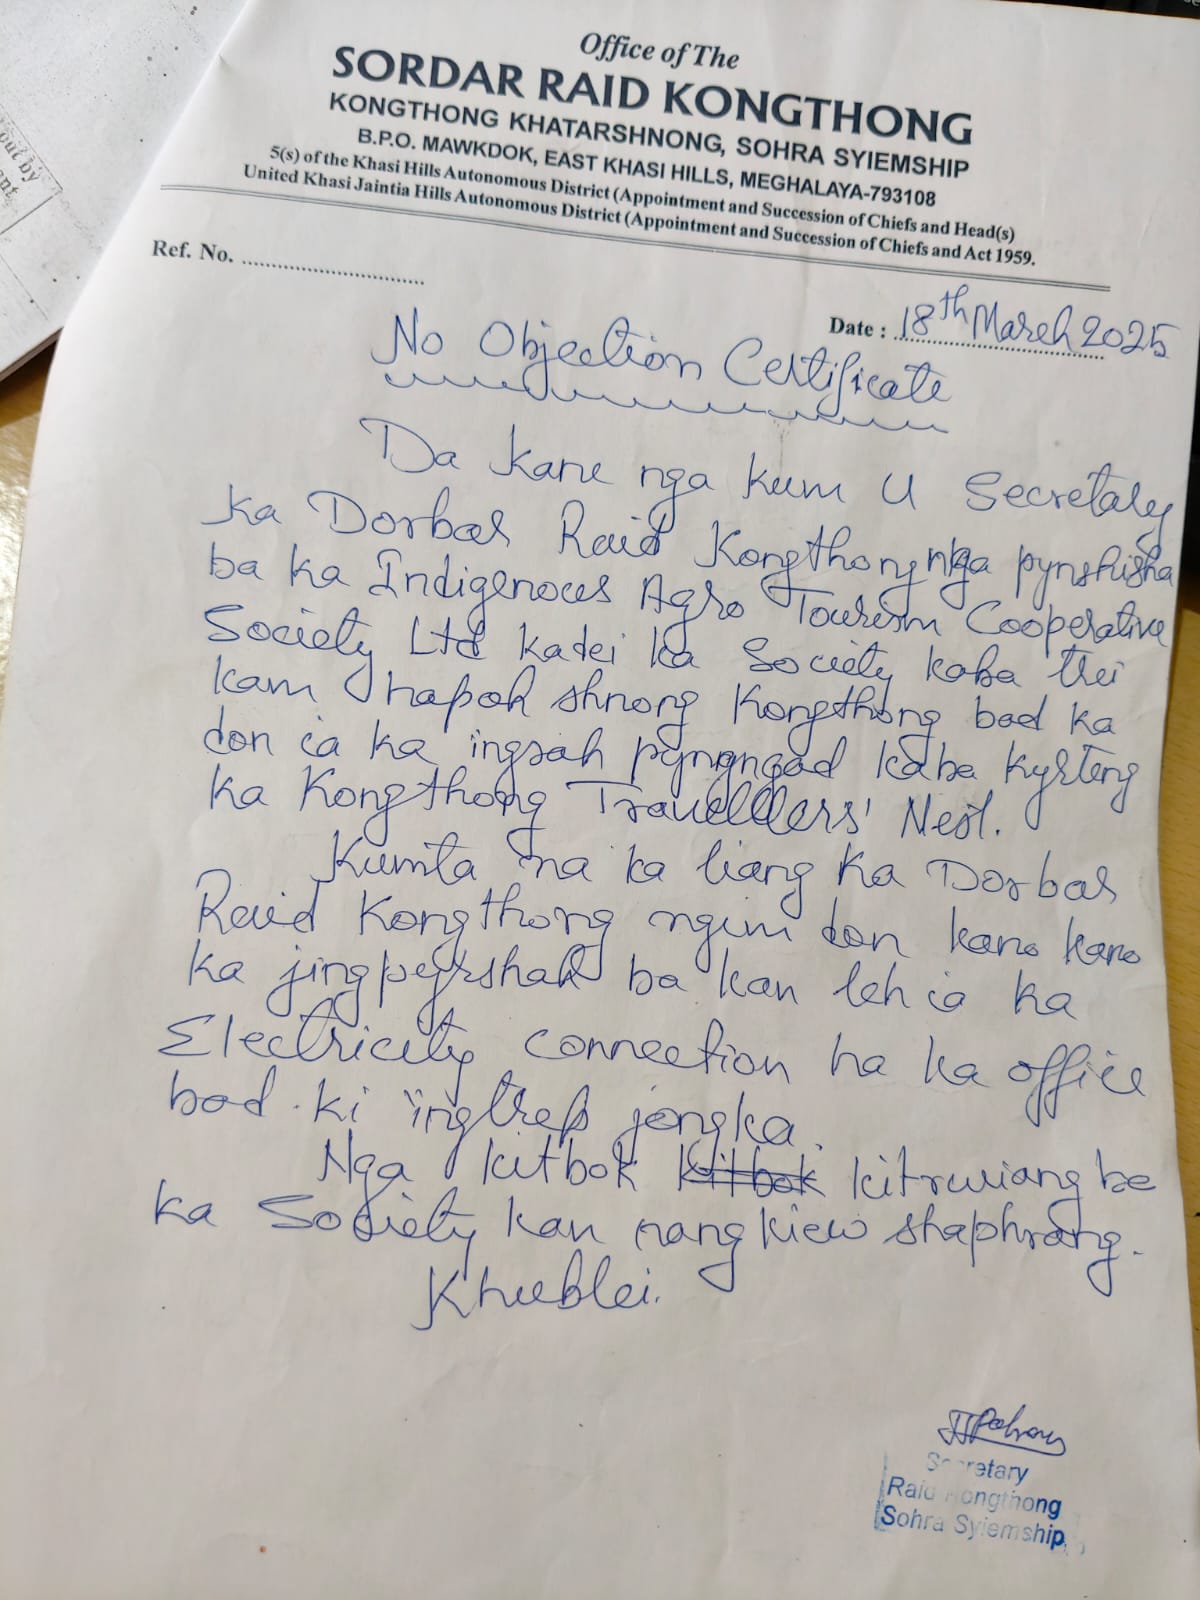 out by
ent
Office of The
SORDAR RAID KONGTHONG
KONGTHONG KHATARSHNONG, SOHRA SYIEMSHIP
B.P.O. MAWKDOK, EAST KHASI HILLS, MEGHALAYA-793108
5(s) of the Khasi Hills Autonomous District (Appointment and Succession of Chiefs and Head(s)
United Khasi Jaintia Hills Autonomous District (Appointment and Succession of Chiefs and Act 1959.
Ref. No. ..............................
Date : 18th March 2025
No Objection Certificate
Da kane nga kum U Secretary
ka Dorbar Raid Kongthong nga pynshisha
ba ka Indigenous Agro Tourism Cooperative
Society Ltd kadei ka Society kaba trei
kam hapoh shnong Kongthong bad ka
don ia ka ingsah pynngad kaba kyrteng
ka Kongthong Travelllers' Nest.
Kumta na ka liang ka Dorbar
Raid Kongthong ngim don kano kano
ka jingpyrshah ba kan leh ia ka
Electricity connection ha ka office
bad ki ïingtrep jongka.
Nga kitbok kitbok kitrwiang be
ka Society kan nang kiew shaphrang.
Khublei.
Secretary
Raid Kongthong
Sohra Syiemship